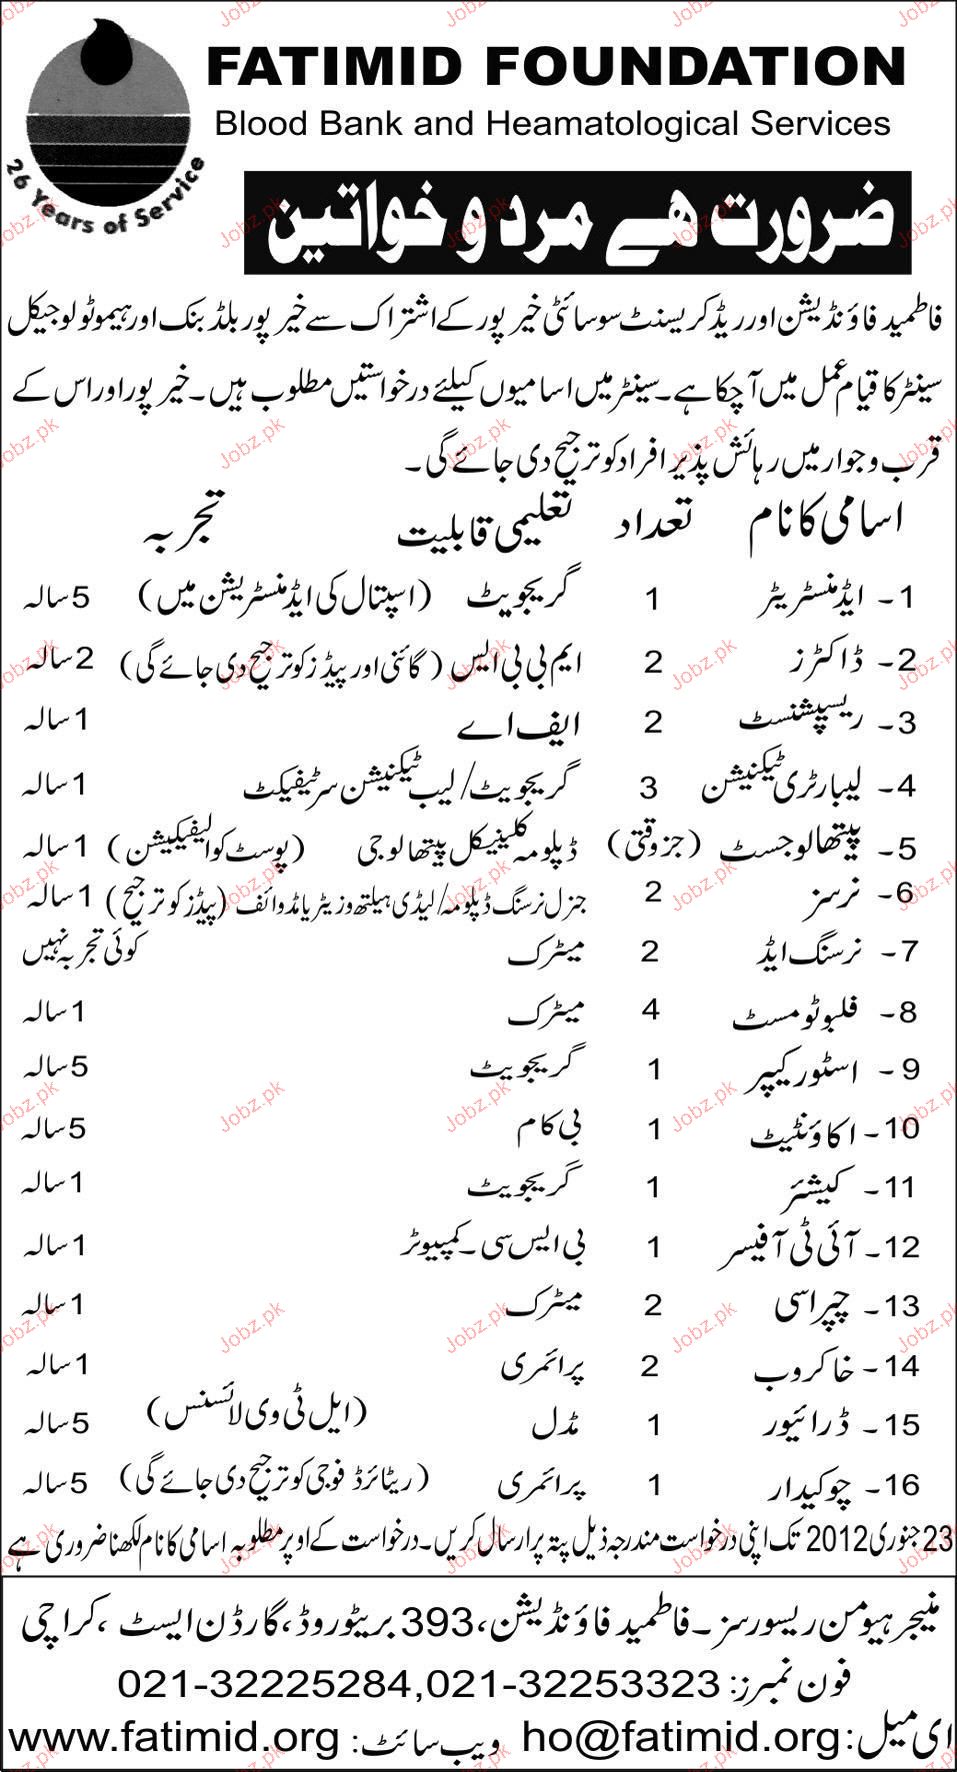 FATIMID FOUNDATION
Blood Bank and Heamatological Services
26 Years of Service
ضرورت ھے مرد و خواتین
فاطمید فاؤنڈیشن اور ریڈ کریسنٹ سوسائٹی خیرپور کے اشتراک سے خیرپور بلڈ بنک اور ہیموٹولوجیکل
سینٹر کا قیام عمل میں آچکا ہے۔ سینٹر میں اسامیوں کیلئے درخواستیں مطلوب ہیں۔ خیرپور اور اس کے
قرب و جوار میں رہائش پذیر افراد کو ترجیح دی جائے گی۔
اسامی کا نام تعداد تعلیمی قابلیت تجربہ
1۔ ایڈمنسٹریٹر 1 گریجویٹ (اسپتال کی ایڈمنسٹریشن میں) 5 سالہ
2۔ ڈاکٹرز 2 ایم بی بی ایس (گائنی اور پیڈز کو ترجیح دی جائے گی) 2 سالہ
3۔ ریسپشنسٹ 2 ایف اے 1 سالہ
4۔ لیبارٹری ٹیکنیشن 3 گریجویٹ/لیب ٹیکنیشن سرٹیفیکٹ 1 سالہ
5۔ پیتھالوجسٹ (جزوقتی) ڈپلومہ کلینیکل پیتھالوجی (پوسٹ کوالیفیکیشن) 1 سالہ
6۔ نرسز 2 جنرل نرسنگ ڈپلومہ/لیڈی ہیلتھ وزیٹر یا مڈوائف (پیڈز کو ترجیح) 1 سالہ
7۔ نرسنگ ایڈ 2 میٹرک کوئی تجربہ نہیں
8۔ فلبوٹومسٹ 4 میٹرک 1 سالہ
9۔ اسٹور کیپر 1 گریجویٹ 5 سالہ
10۔ اکاؤنٹینٹ 1 بی کام 5 سالہ
11۔ کیشئر 1 گریجویٹ 1 سالہ
12۔ آئی ٹی آفیسر 1 بی ایس سی۔ کمپیوٹر 1 سالہ
13۔ چپراسی 2 میٹرک 1 سالہ
14۔ خاکروب 2 پرائمری 1 سالہ
15۔ ڈرائیور 1 مڈل (ایل ٹی وی لائسنس) 5 سالہ
16۔ چوکیدار 1 پرائمری (ریٹائرڈ فوجی کو ترجیح دی جائے گی) 5 سالہ
23 جنوری 2012 تک اپنی درخواست مندرجہ ذیل پتہ پر ارسال کریں۔ درخواست کے اوپر مطلوبہ اسامی کا نام لکھنا ضروری ہے
منیجر ہیومن ریسورسز۔ فاطمید فاؤنڈیشن، 393 بریٹو روڈ، گارڈن ایسٹ، کراچی
فون نمبرز: 021-32225284,021-32253323
ای میل: ho@fatimid.org ویب سائٹ: www.fatimid.org